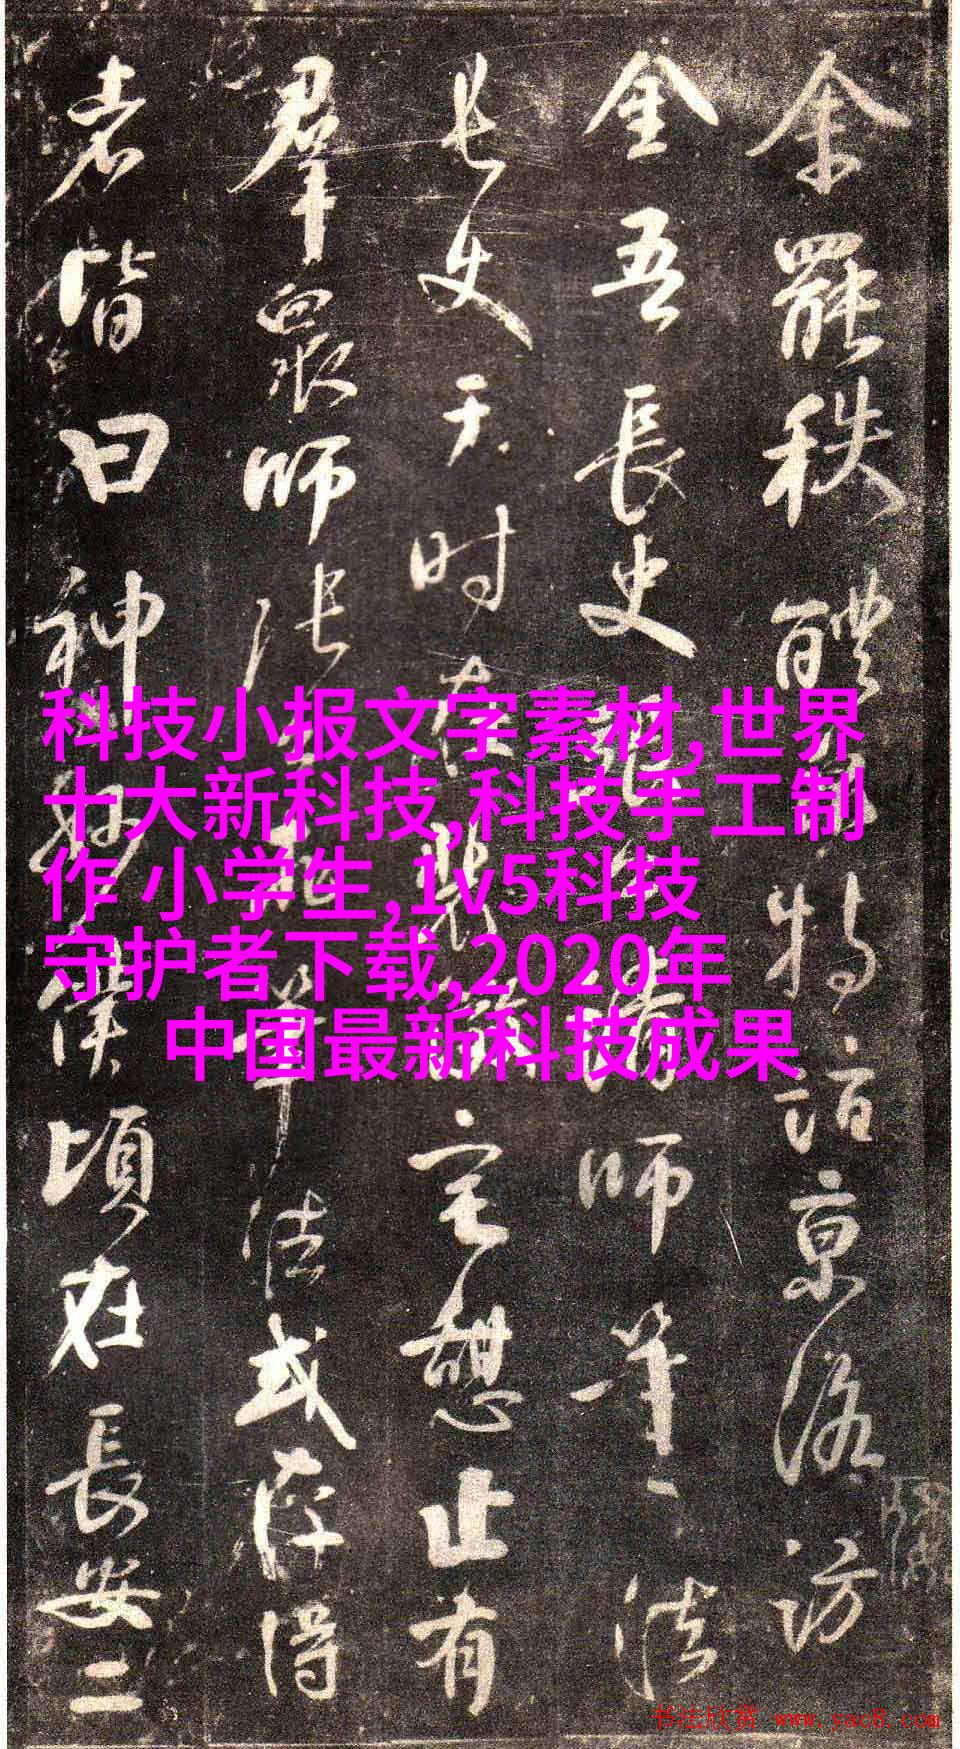 余罷秩醴泉特詣京洛訪
金吾長史師筆法
長史于時在裴宅憩止有
羣眾師張筆法或存得
者皆曰神妙僕頃在長安二
科技小报文字素材,世界
十大新科技,科技手工制
作 小学生,1v5科技
守护者下载,2020年
中国最新科技成果
书法欣赏 www.yac8.com